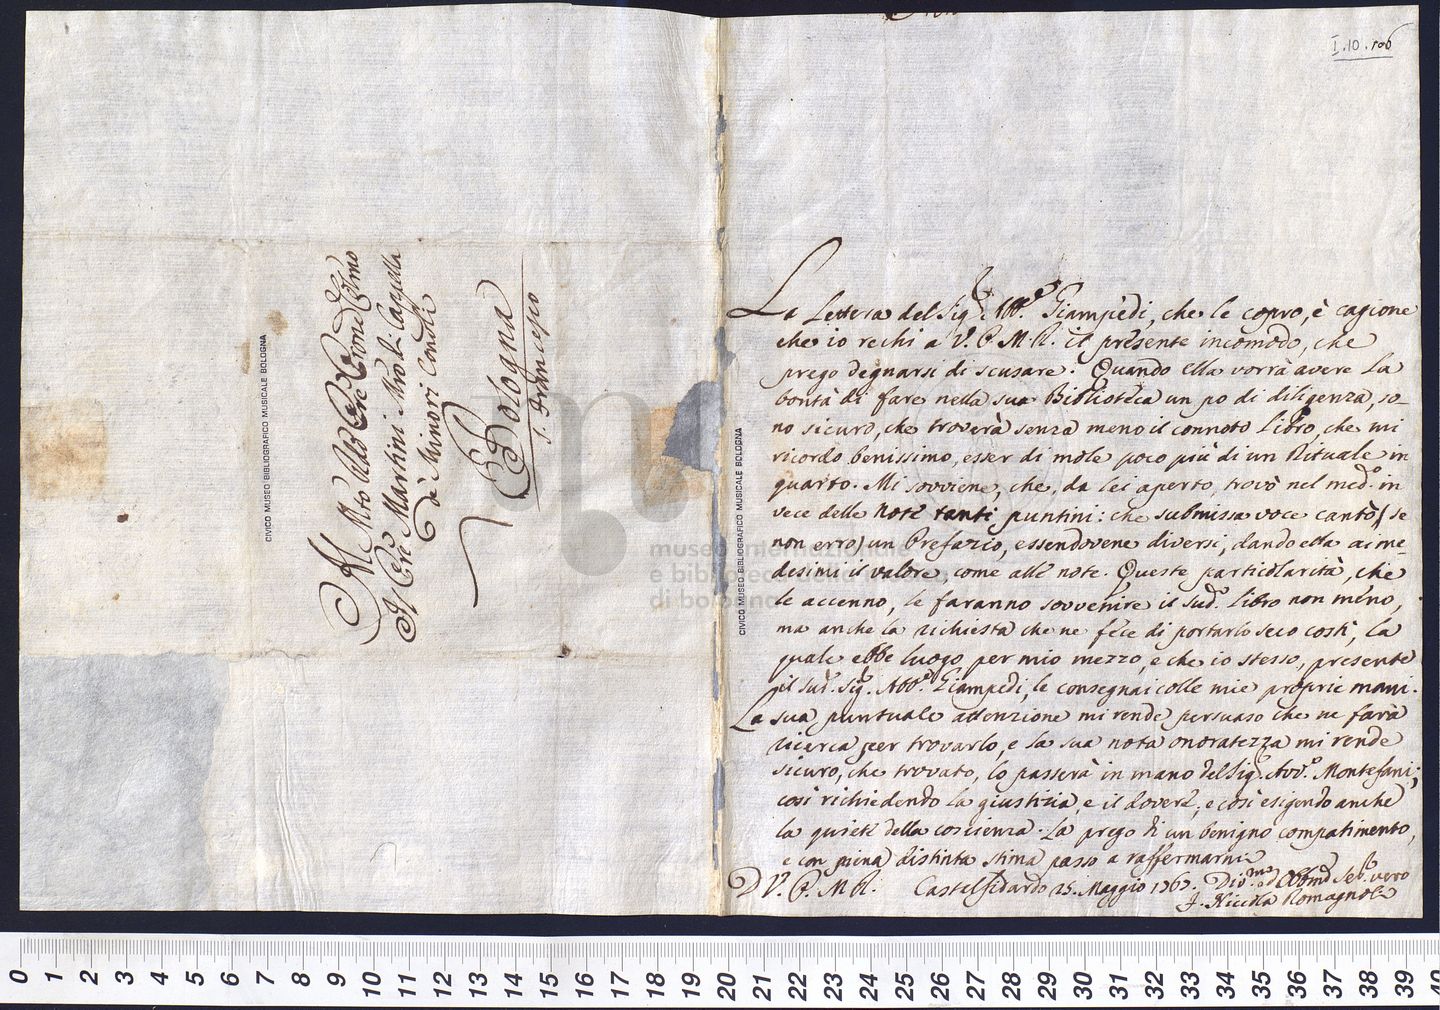 I.10.106
Al Mto Vildo Pre Pione Colmo
Il Pre Martini Mro di Cappella
De' Minori Conli
Bologna
S. Francesco
CIVICO MUSEO BIBLIOGRAFICO MUSICALE BOLOGNA
CIVICO MUSEO BIBLIOGRAFICO MUSICALE BOLOGNA
museo internazionale
e biblioteca della musica
di bologna
La Lettera del Sig.e Abb.e Giampedi, che le copro, è cagione
che io rechi a V. P. M. R. il presente incomodo, che
prego degnarsi di scusare. Quando ella vorrà avere la
bontà di fare nella sua Biblioteca un po di diligenza, so-
no sicuro, che troverà senza meno il connoto Libro, che mi
ricordo benissimo, esser di mole poco più di un Rituale in
quarto. Mi sovviene, che, da lei aperto, trovò nel med.o in
vece delle note tanti puntini: che submissa voce cantò (se
non erro) un Prefazio, essendovene diversi, dando ella ai me-
desimi il valore come alle note. Queste particolarità, che
le accenno, le faranno sovvenire il sud.o libro non meno,
ma anche la richiesta che ne fece di portarlo seco costì, la
quale ebbe luogo per mio mezzo, e che io stesso, presente
il sud.o Sig. Abb.e Giampedi, le consegnai colle mie proprie mani.
La sua puntuale attenzione mi rende persuaso che ne farà
ricerca per trovarlo, e la sua nota onoratezza mi rende
sicuro, che trovato, lo passerà in mano del Sig. Avv.o Montefani;
così richiedendo la giustizia, e il dovere, e così esigendo anche
la quiete della coscienza. La prego di un benigno compatimento,
e con piena distinta stima passo a raffermarmi
D V. P. M. R. Castelfidardo 25. Maggio Div.mo ed Obbmo Se.e vero
F. Niccola Romagnoli
0 1 2 3 4 5 6 7 8 9 10 11 12 13 14 15 16 17 18 19 20 21 22 23 24 25 26 27 28 29 30 31 32 33 34 35 36 37 38 39 40